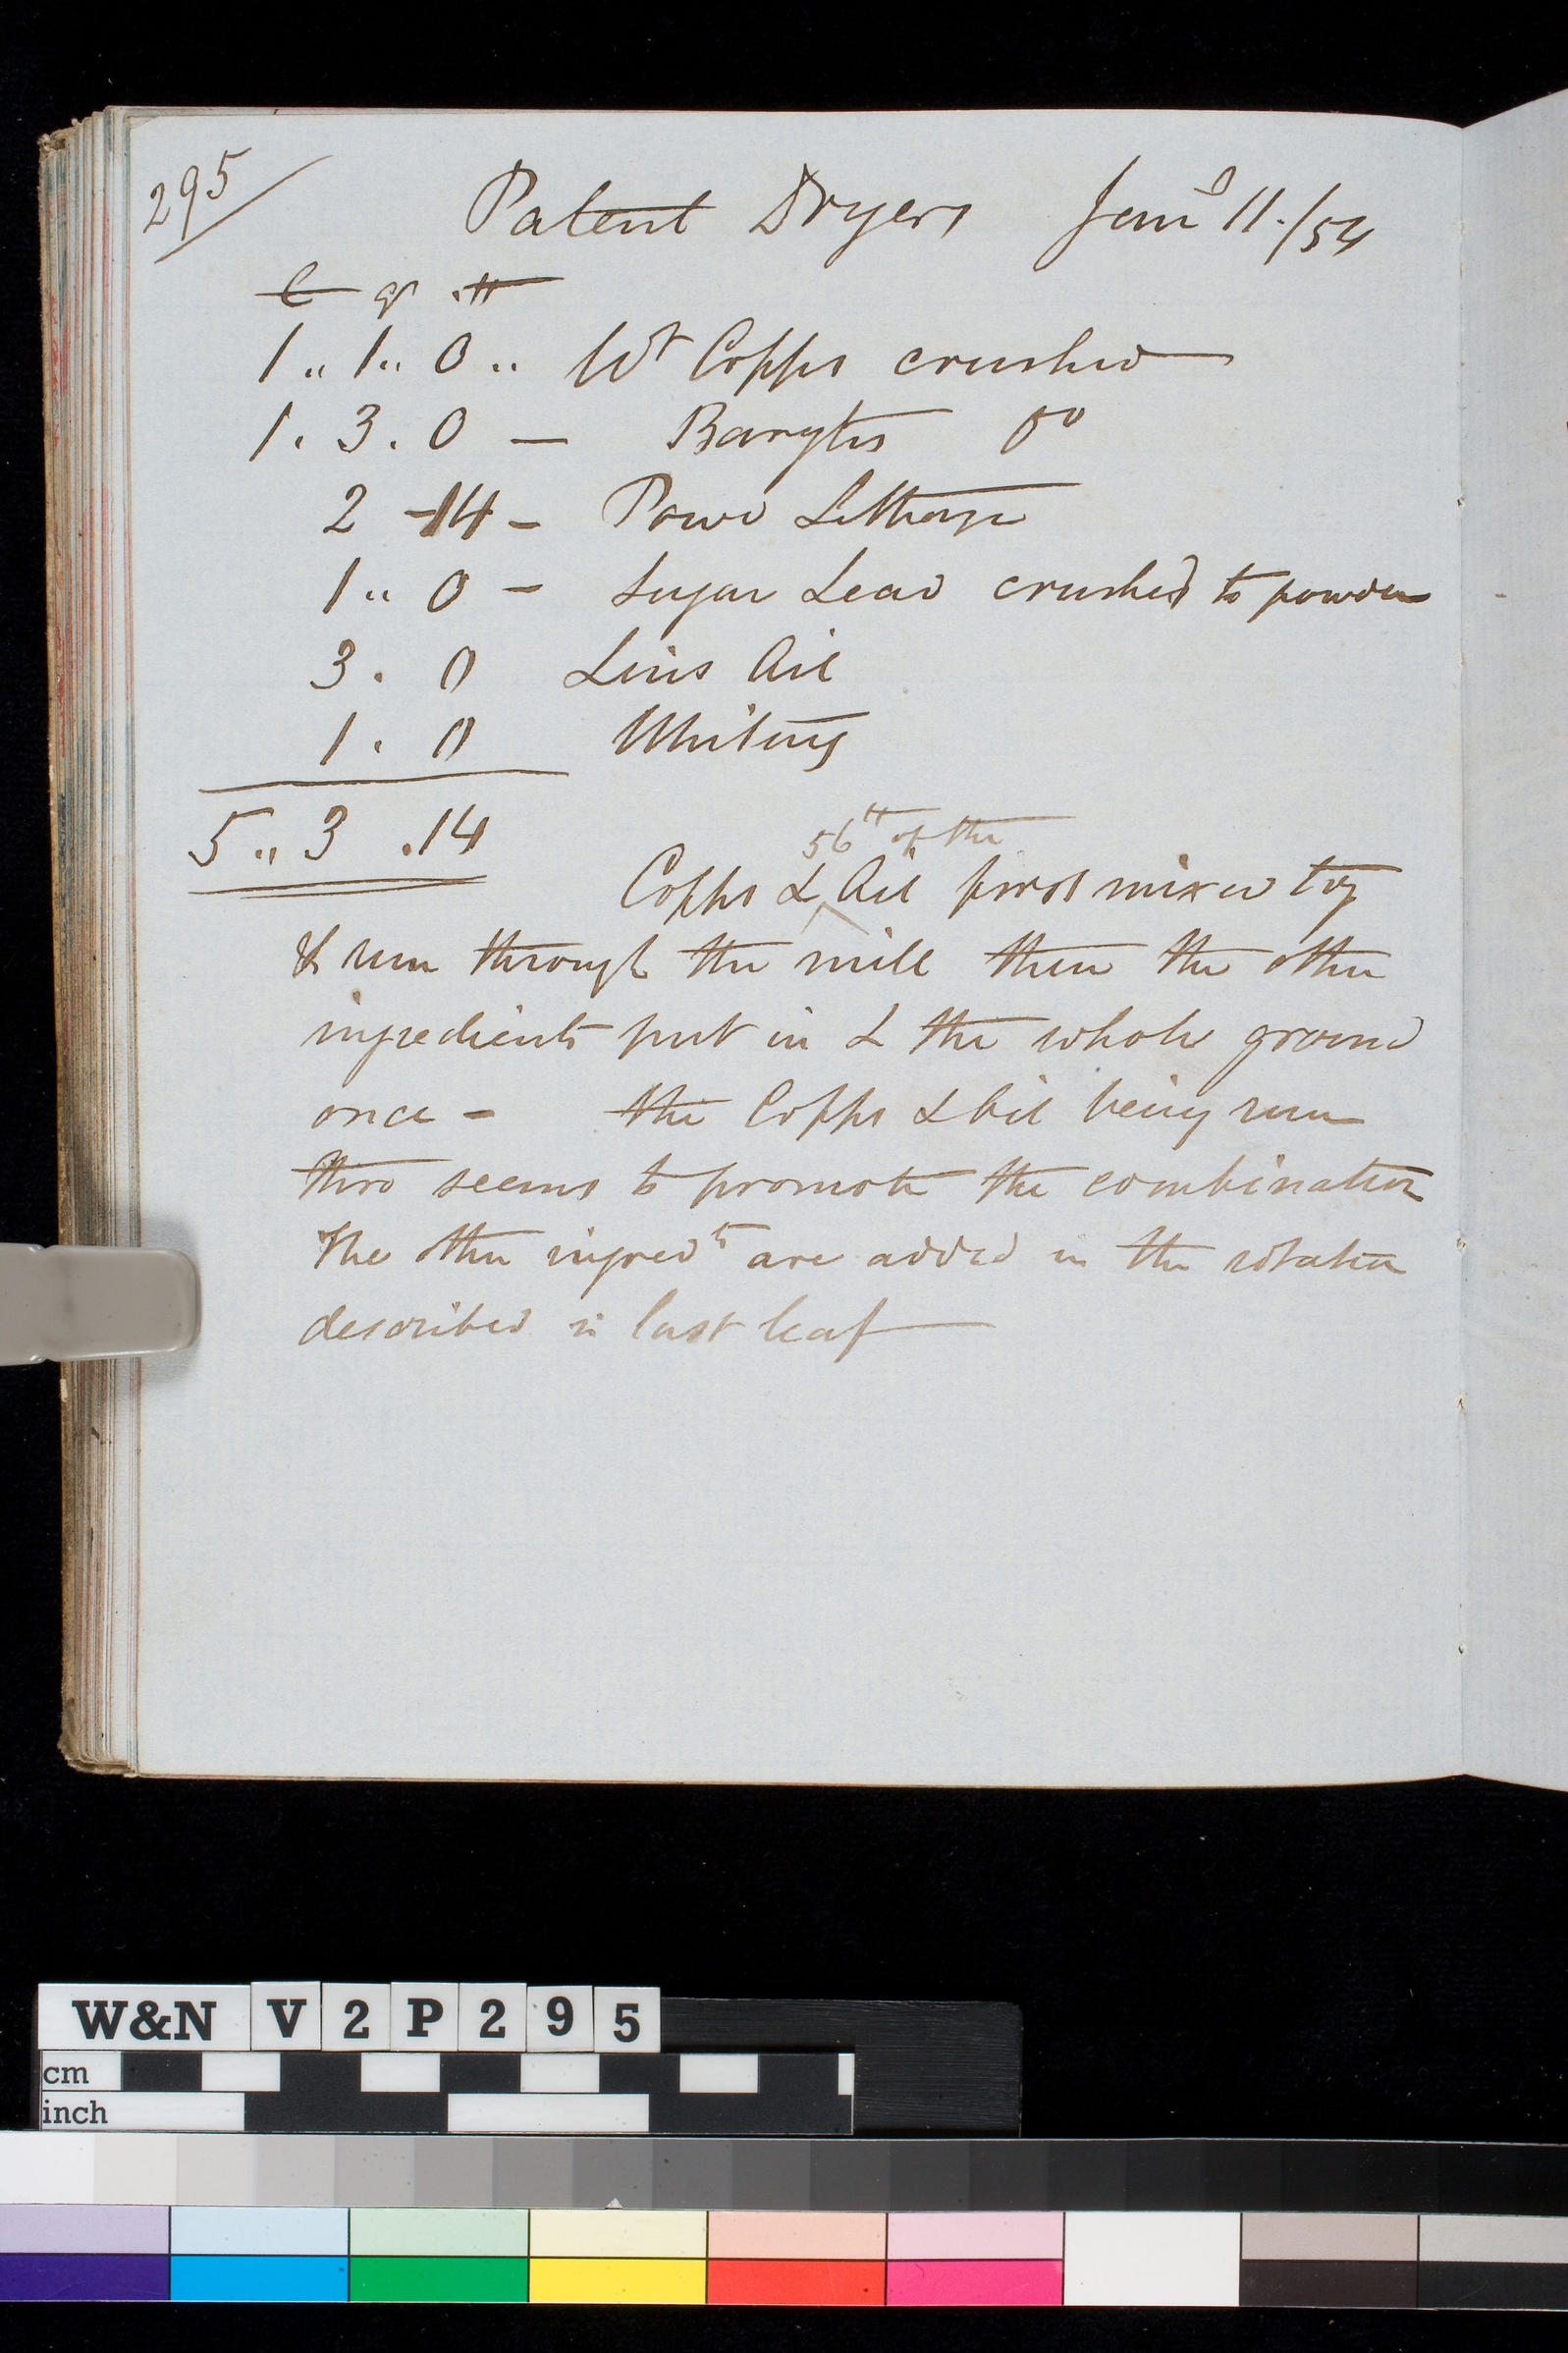 295/
Patent Dryers Jany 11./54
C qr lb
1 .. 1 .. 0 .. Wt Copps crushed
1 . 3 . 0 — Barytes Do
2 - 14 - Powd Litharge
1 .. 0 - Sugar Lead crushed to powder
3 . 0 Lins Oil
1 . 0 Whiting
5 .. 3 . 14
56 lb of the
Copps & Oil first mixed tog
& run through the mill then the other
ingredients put in & the whole ground
once - the Copps & Oil being run
thro seems to promote the combination
The other ingredts are added in the rotation
described in last leaf
W&N V2P295
cm
inch